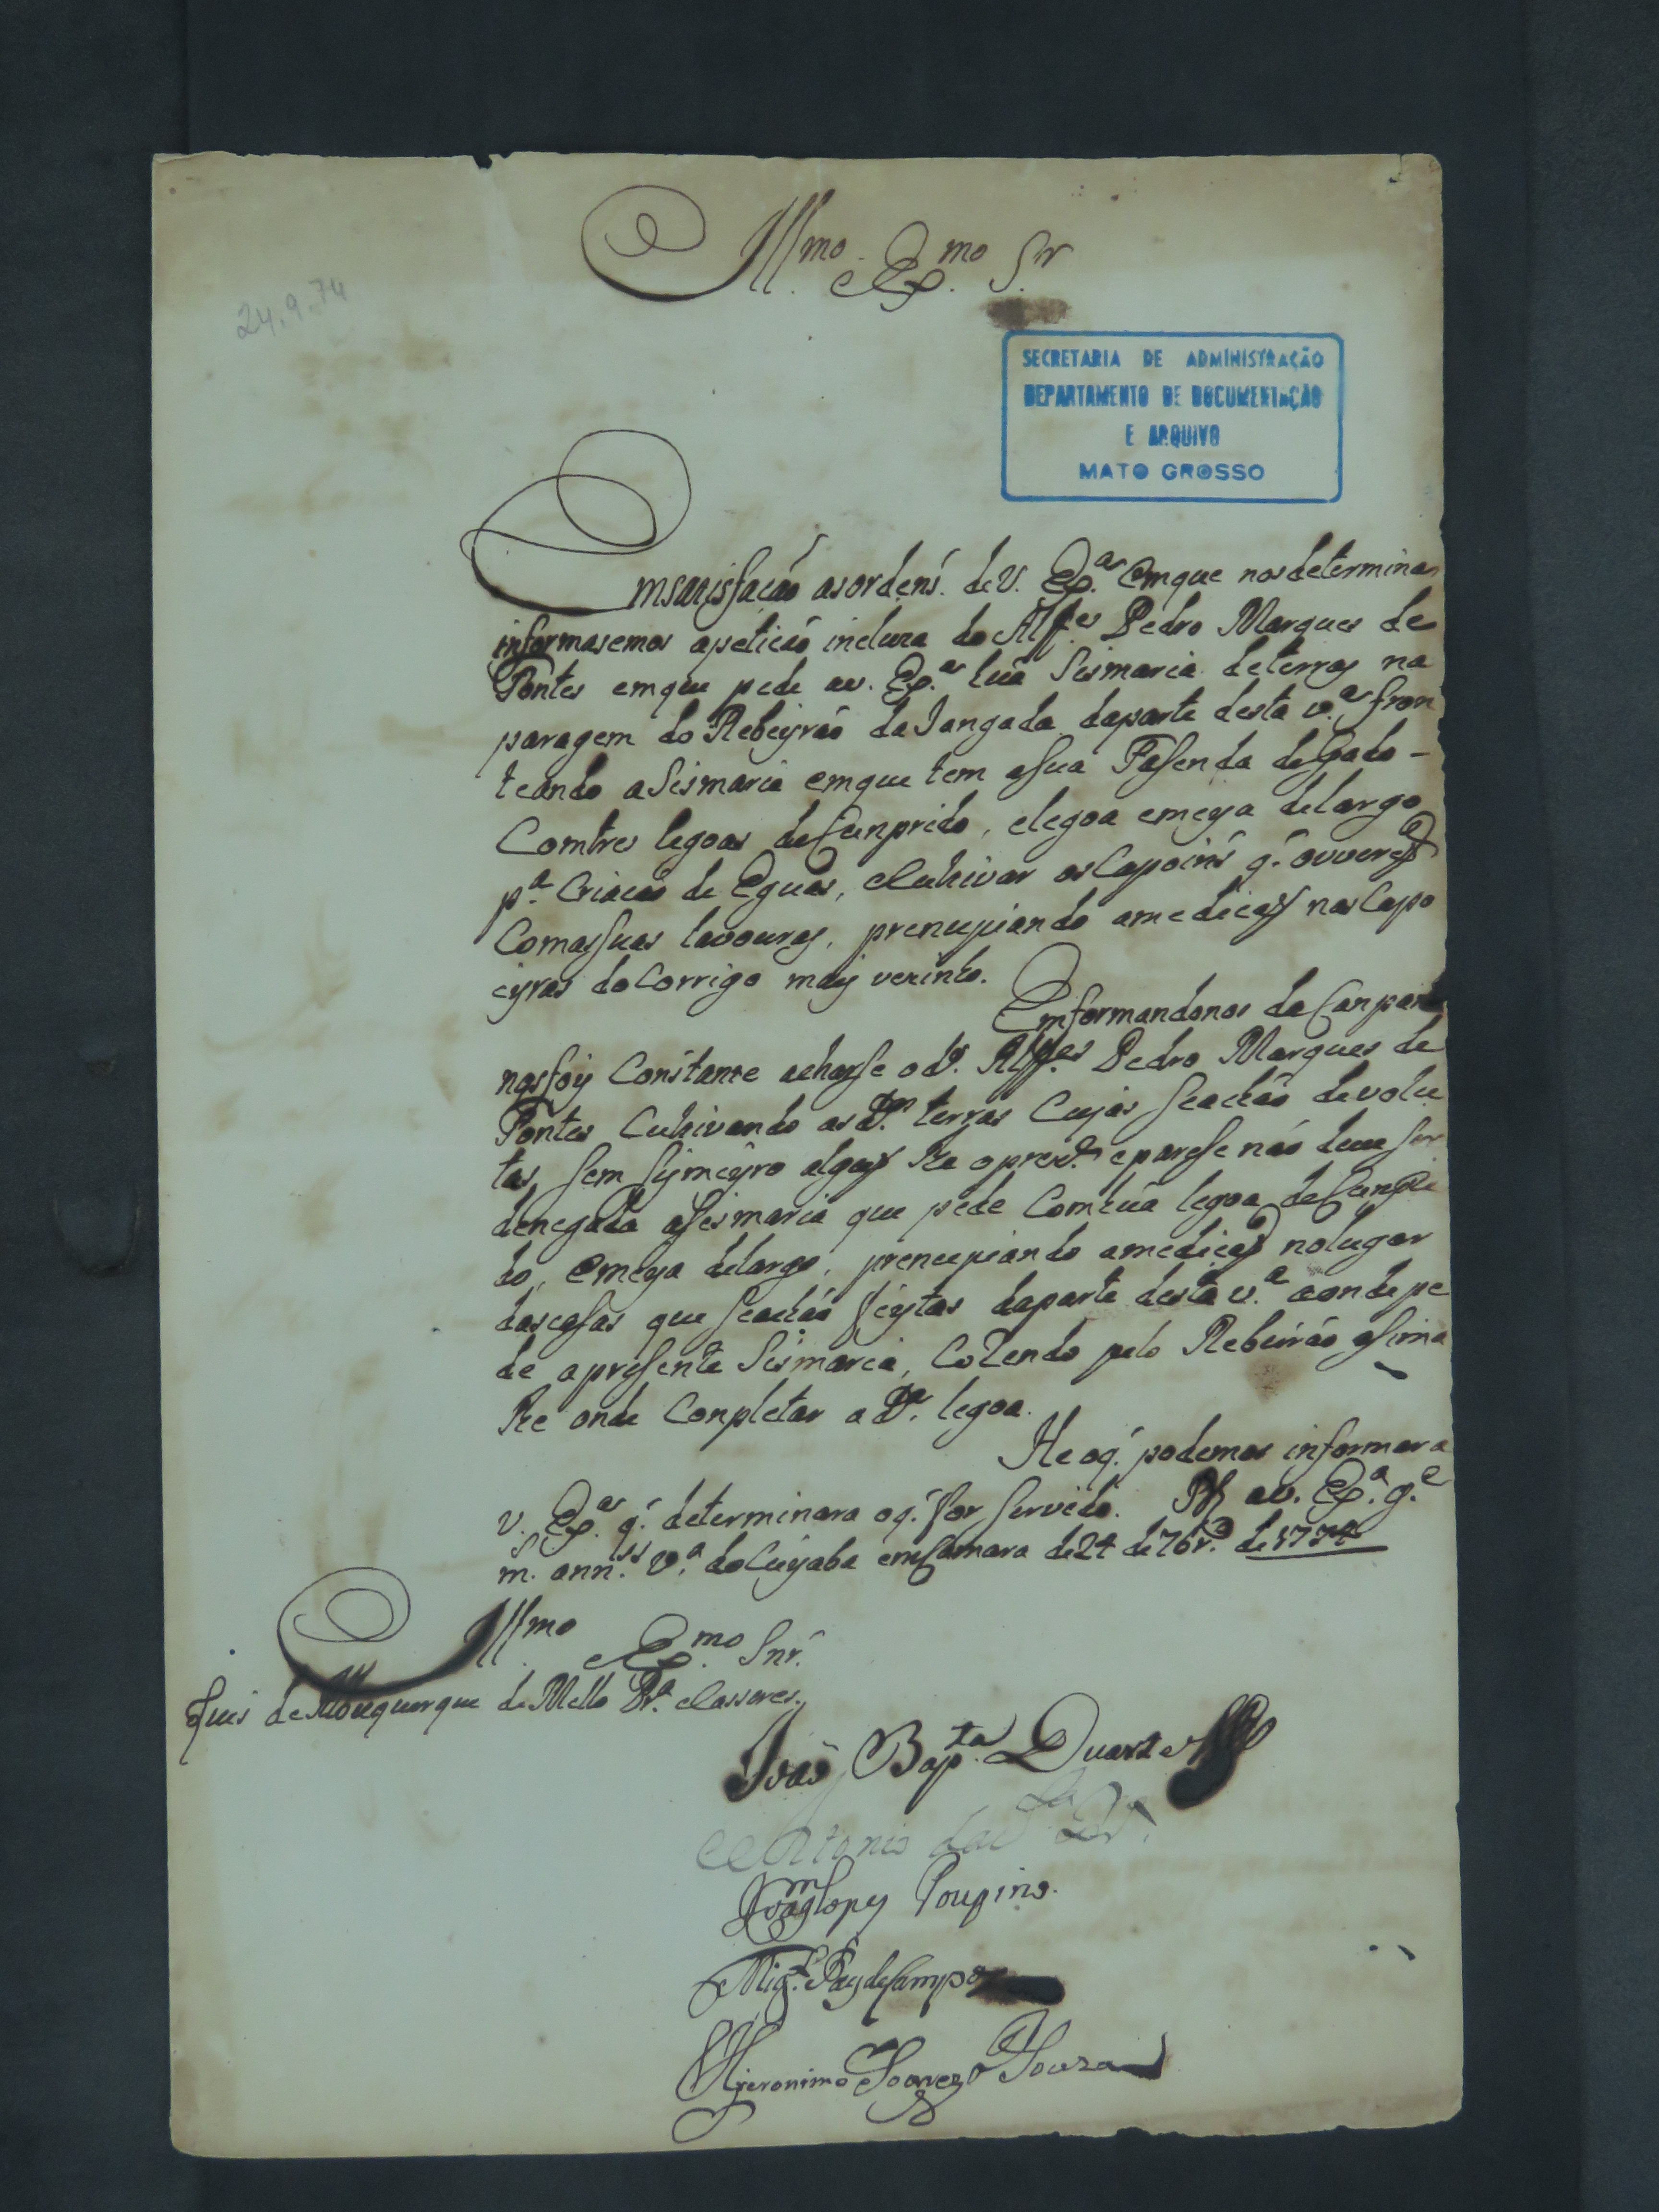 Illmo. e Exmo. Sr
24.9.74
SECRETARIA DE ADMINISTRAÇÃO
DEPARTAMENTO DE DOCUMENTAÇÃO
E ARQUIVO
MATO GROSSO
Emsatisfacaõ asordens. deV. Exa. Emque nosdetermina
informasemos apeticaõ incluza do Alfes. Pedro Marques de
Fontes emque pede av. Exa. huã Sismaria deterras na
paragem do Rebeyraõ da Jangada daparte desta va. fron
teando aSismaria emque tem asua Fasenda deGado -
Comtres legoas deCunprido, elegoa emeya delargo
pa. Criacaõ de Eguas, eCultivar osCapoins q. ouverem
Comassuas lavouras, prencipiando amedicaõ nasCapo
eyras doCorrigo mays vezinho.
Emformandonos da Canpanha
nosfoy Constante acharse od. Alfes. Pedro Marques de
Fontes Cultivando asdas. terras Cujas seachaõ devolu
tas, sem sysmeyro algum the oprezte. eparese naõ deve ser
denegada asesmaria que pede Comhuã legoa deCunpri
do, emeya delargo, prencipiando amedicaõ nolugar
dascasas que seachaõ feytas daparte desta va. aonde pe
de apresente Sismaria, Corendo pelo Rebeiraõ asima
the onde Conpletar a da. legoa.
He oq. podemos informar a
V. Exa. q. determinara oq. for servido. Ds. a V. Exa. ge.
m. anns. Va. doCuyaba emCamara de24 de7br.o de1774
Illmo e Exmo. Snr.
Luis de Albuquerque de Mello Pra. eCasseres.
Joaõ Bapta. Duarte
Antonio
Joaqm Lopes Poupino.
Migl. Paes deCampos
Hjeronimo Soarez Souza